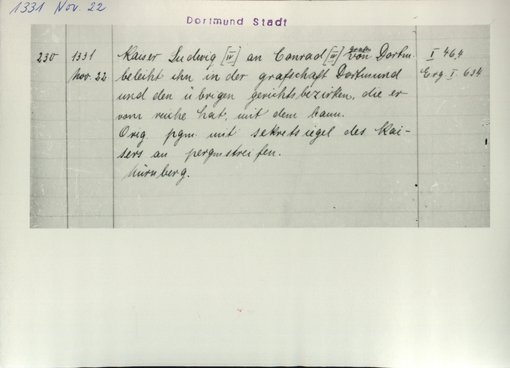 1331 Nov. 22
Dortmund Stadt
230 1331 Kaiser Ludwig [IV] an Conrad [IV] Graf von Dortm. I 464
Nov. 22 beleiht ihn in der grafschaft Dortmund Erg. I 634
und den übrigen gerichtsbezirken, die er
vom reiche hat, mit dem bann.
Orig. pgm. mit sekretsiegel des Kai-
sers an pergmstreifen.
Nürnberg.